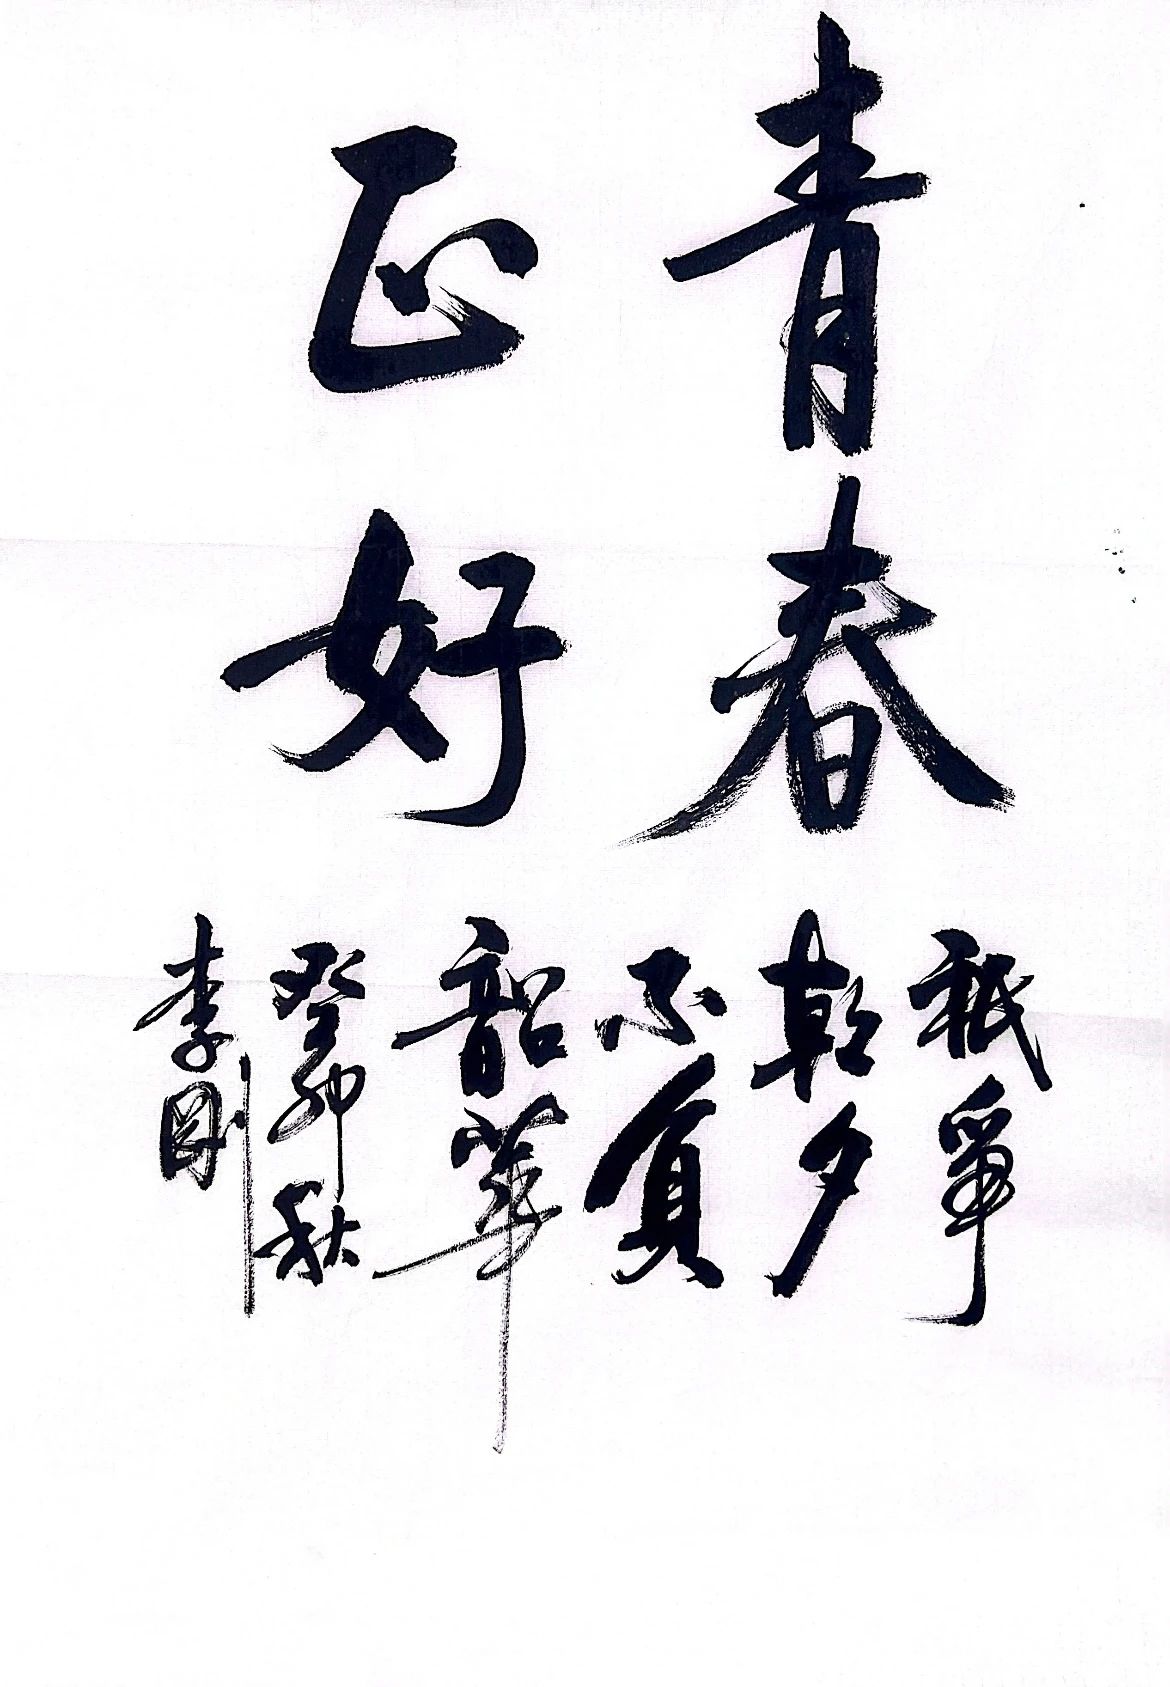 青春
正好
祇爭
乾夕
不負
韶華
癸卯秋
李剛